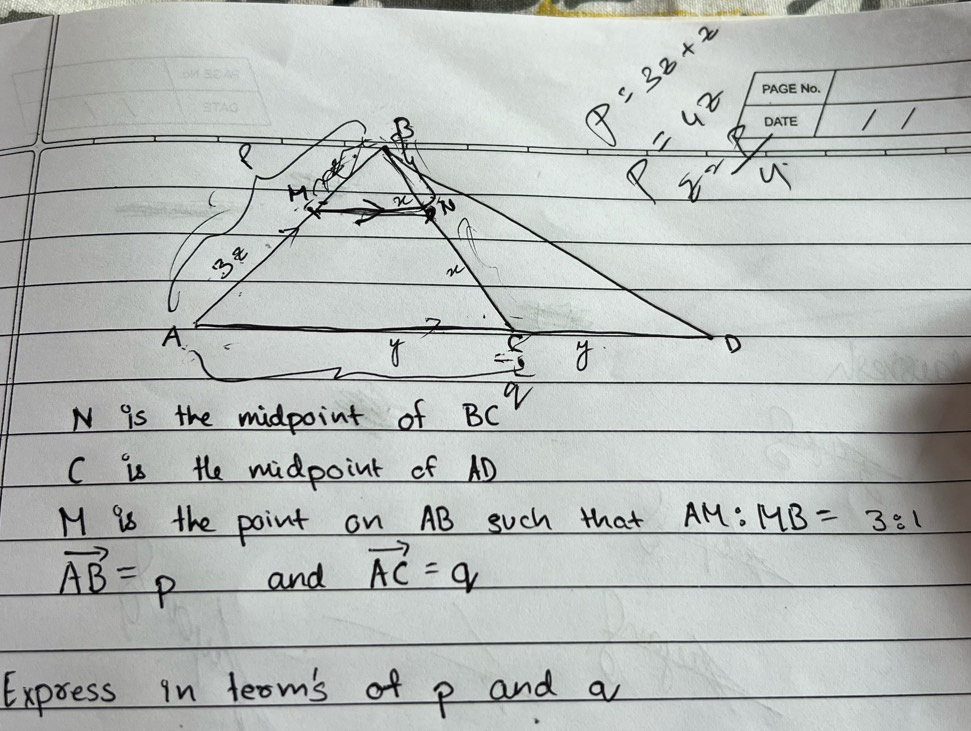 PAGE No.
DATE / /
P = 3z + z
P = 4z
z = P/4
P
B
M
x
N
3z
x
A
y
C
y
D
q
N is the midpoint of BC
C is the midpoint of AD
M is the point on AB such that AM : MB = 3:1
AB = p and AC = q
Express in term's of p and q